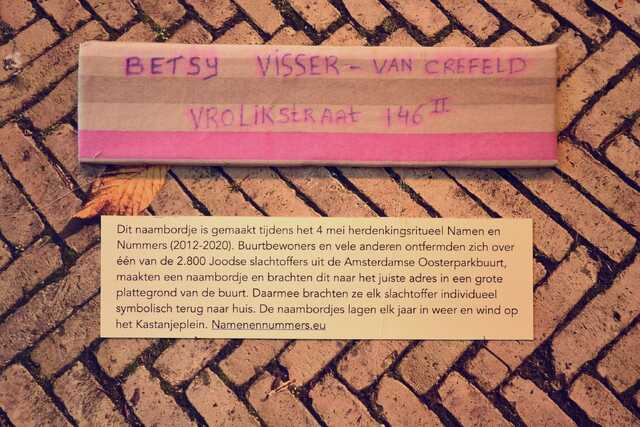 BETSY VISSER - VAN CREFELD
VROLIKSTRAAT 146 II
Dit naambordje is gemaakt tijdens het 4 mei herdenkingsritueel Namen en
Nummers (2012-2020). Buurtbewoners en vele anderen ontfermden zich over
één van de 2.800 Joodse slachtoffers uit de Amsterdamse Oosterparkbuurt,
maakten een naambordje en brachten dit naar het juiste adres in een grote
plattegrond van de buurt. Daarmee brachten ze elk slachtoffer individueel
symbolisch terug naar huis. De naambordjes lagen elk jaar in weer en wind op
het Kastanjeplein. Namenennummers.eu